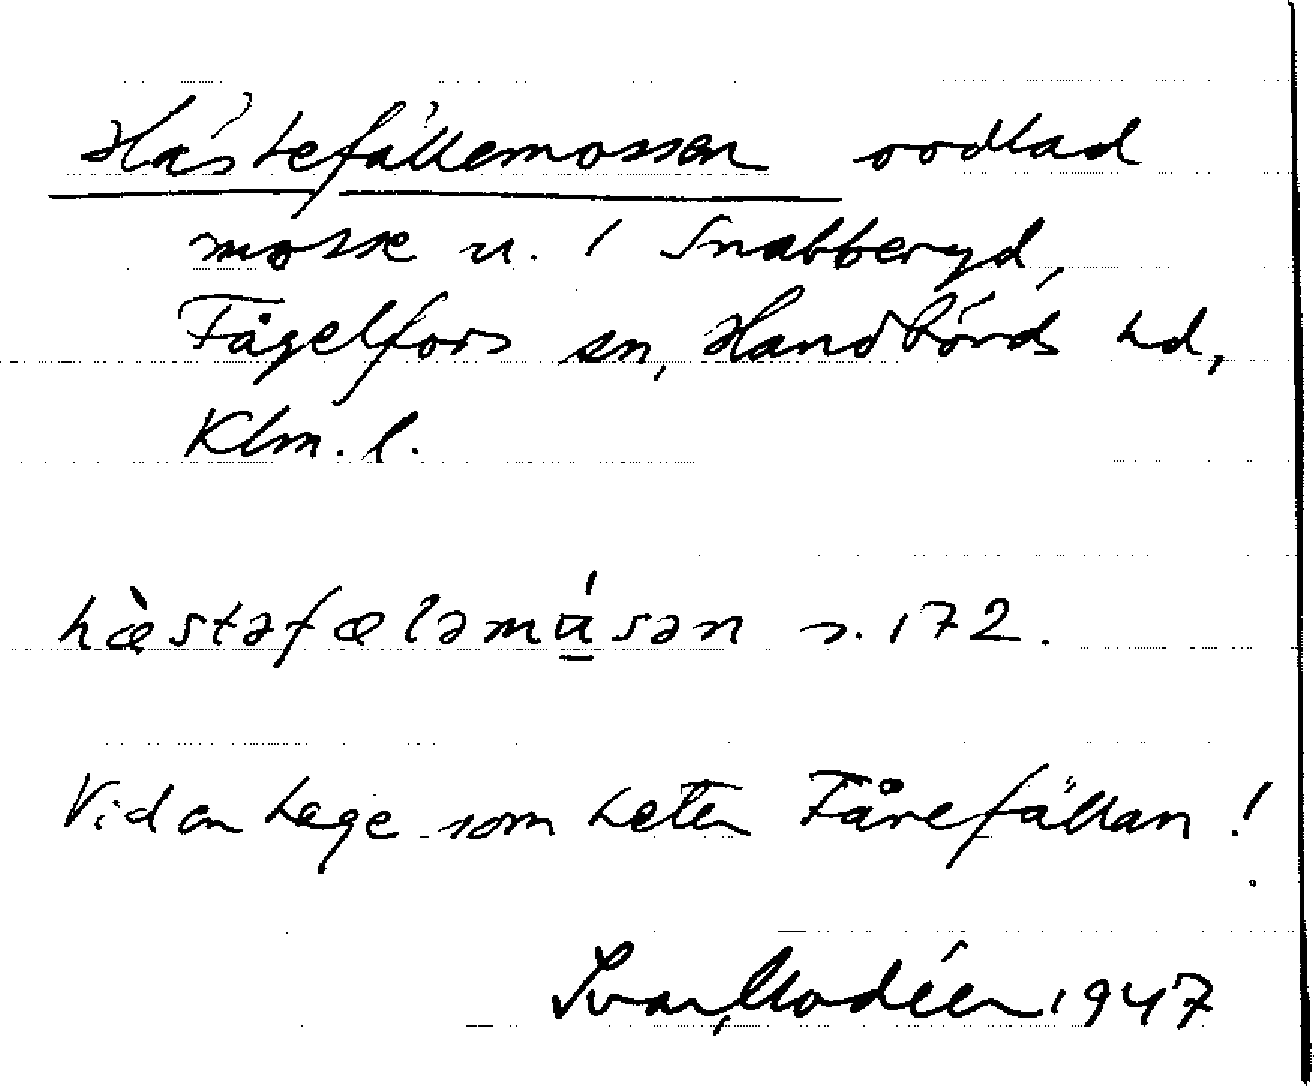 Hästefällemossen oodlad
mosse u. 1 Snabberyd,
Fågelfors sn, Handbörds hd,
Klm. l.
hæ̀stəfæləmú̱sən s. 172.
Vid en hage som heter Fårefällan !
Ivar Modéer 1947